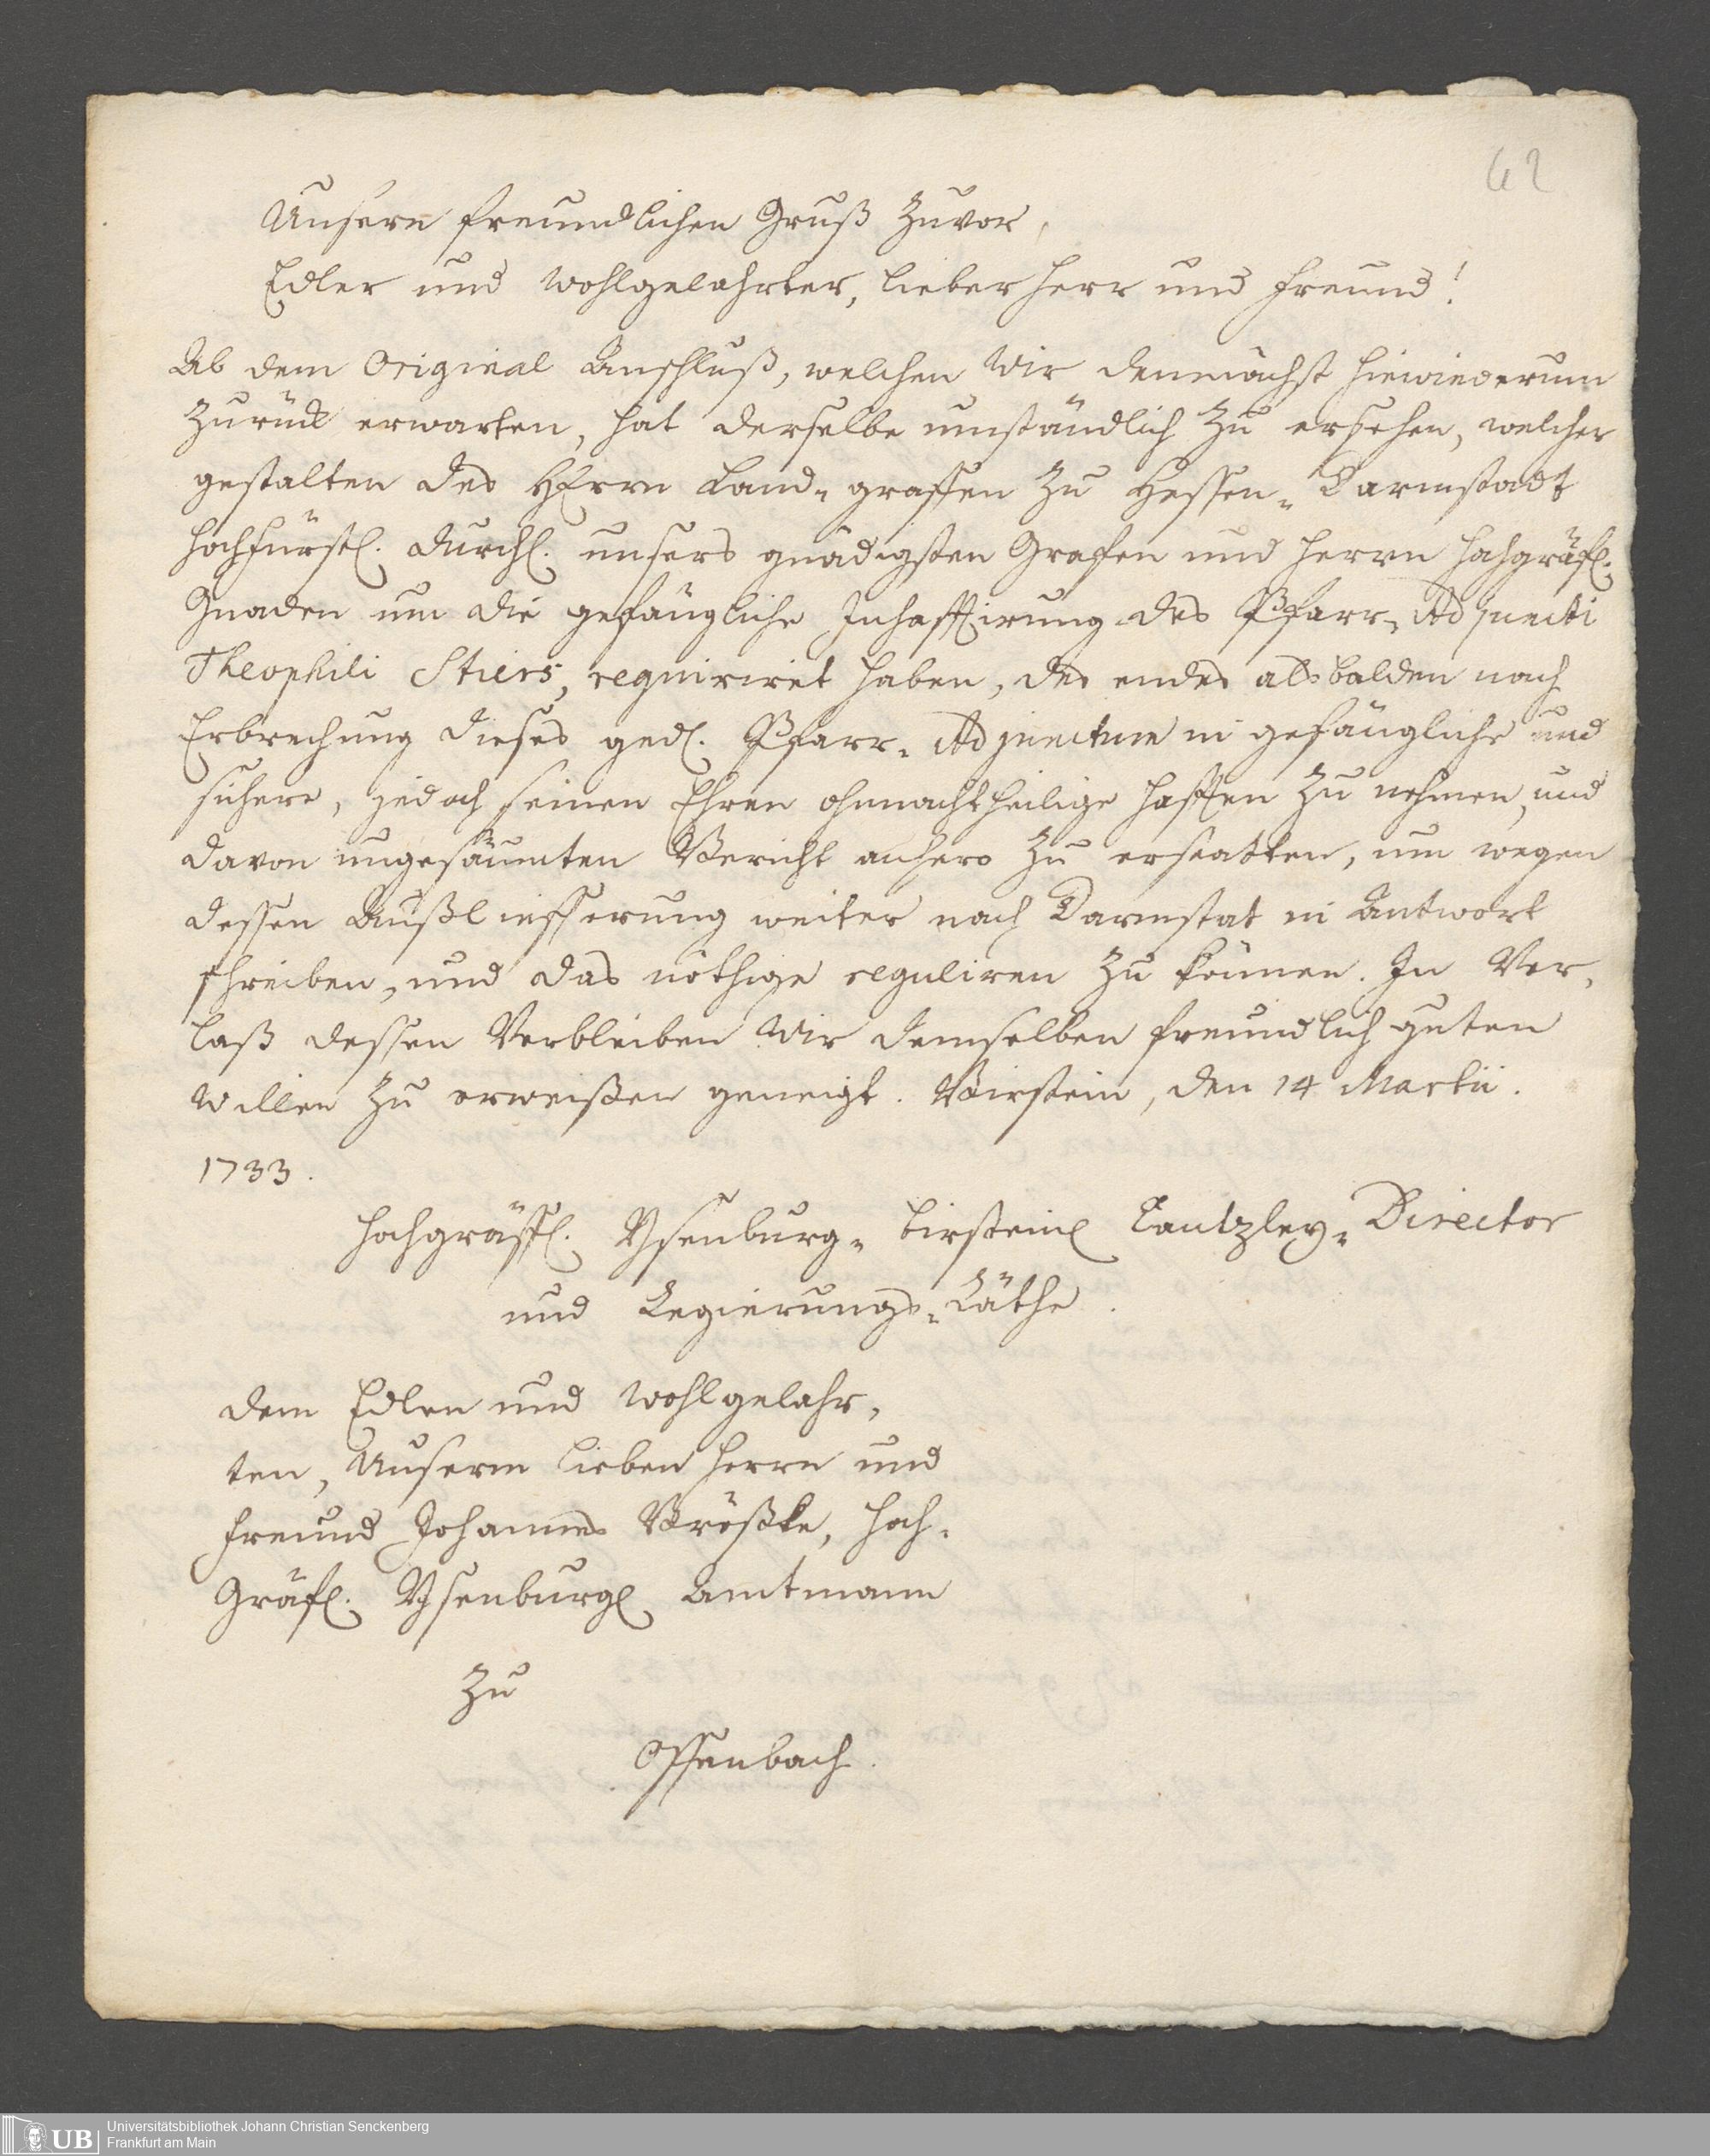 62
Unsern freundlichen Gruß zuvor,
Edler und wohlgelahrter, lieber Herr und Freund!
Ab dem Original Anschluß, welchen wir demnächst hinwiederum
zurück erwarten, hat derselbe umständlich zu ersehen, welcher
gestalten des HErrn Land-graffen zu Hessen-Darmstadt
Hochfürstl. Durchl. unsers gnädigsten Grafen und Herrn Hochgräfl.
Gnaden um die gefängliche Inhafftirung des Pfarr-Adjuncti
Theophili Stiers, requiriret haben, des endes alsbalden nach
Erbrechung dieses ged. Pfarr-Adjunctum in gefängliche und
sichere, jedoch seinen Ehren ohnnachtheilige Hafften zu nehmen, und
davon ungesäumten Bericht anhero zu erstatten, um wegen
dessen Außliefferung weiter nach Darmstat in Antwort
schreiben, und das nöthige reguliren zu können. In Ver-
laß dessen Verbleiben wir demselben freundlich guten
Willen zu erweißen geneigt. Birstein, den 14 Martii.
1733.
Hochgräffl. Ysenburg-birsteinl Cantzley-Director
und Regierungs-Räthe.
Dem Edlen und Wohlgelahr-
ten, Unserm lieben Herrn und
Freund Johannes Brößke, Hoch-
Gräfl. Ysenburgl Amtmann
zu
Offenbach.
UB Universitätsbibliothek Johann Christian Senckenberg
Frankfurt am Main